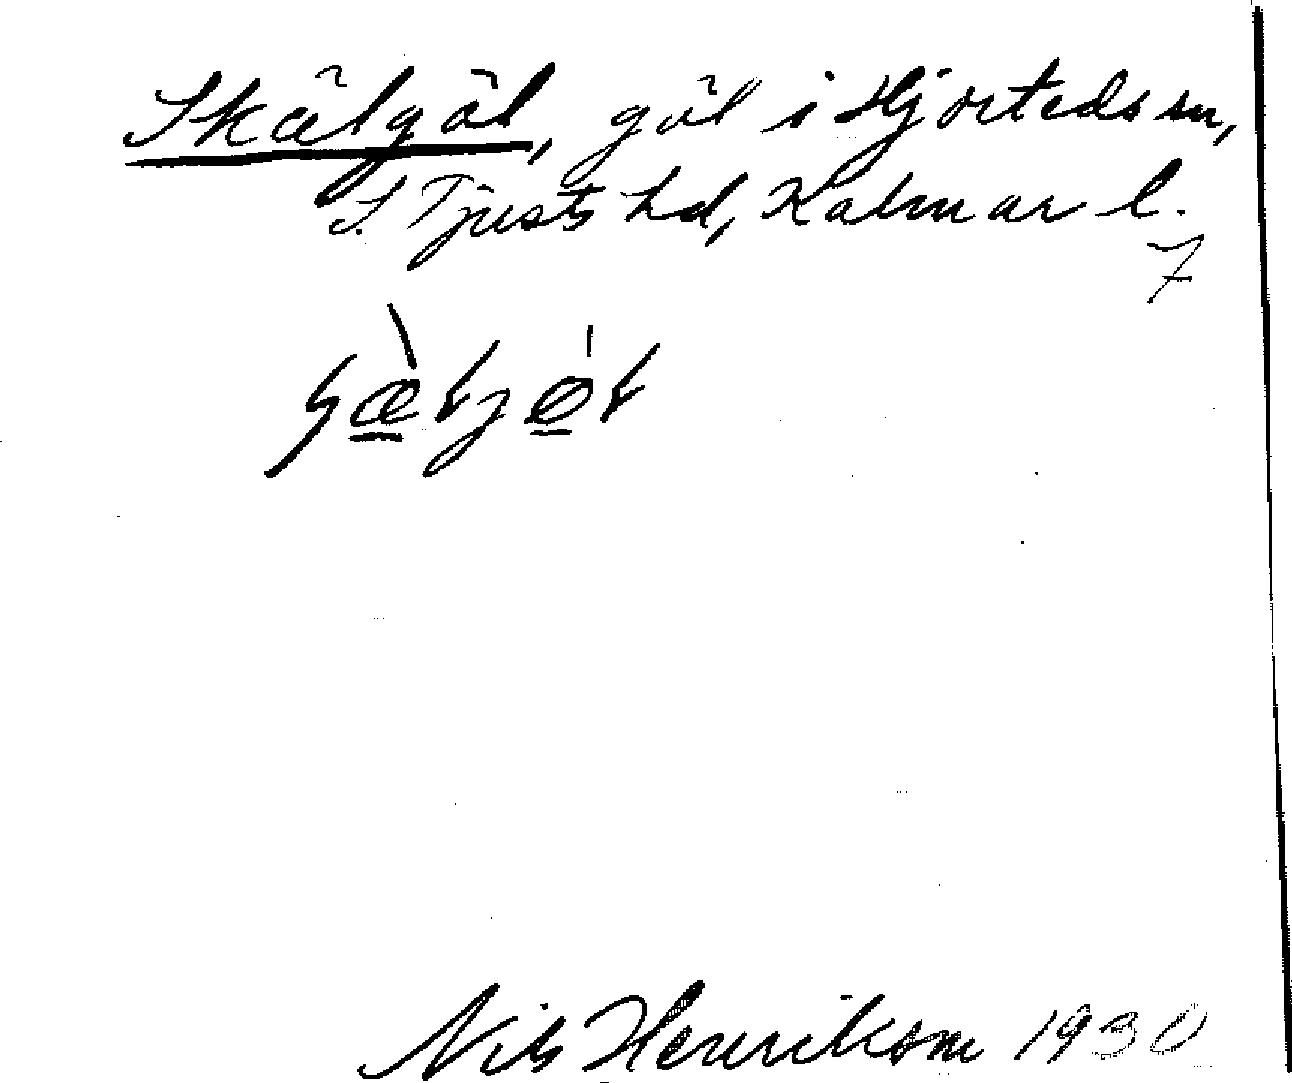 Skälgöl, göl i Hjorteds sn,
S. Tjusts hd, Kalmar l.
7
Nils Henrikson 1930